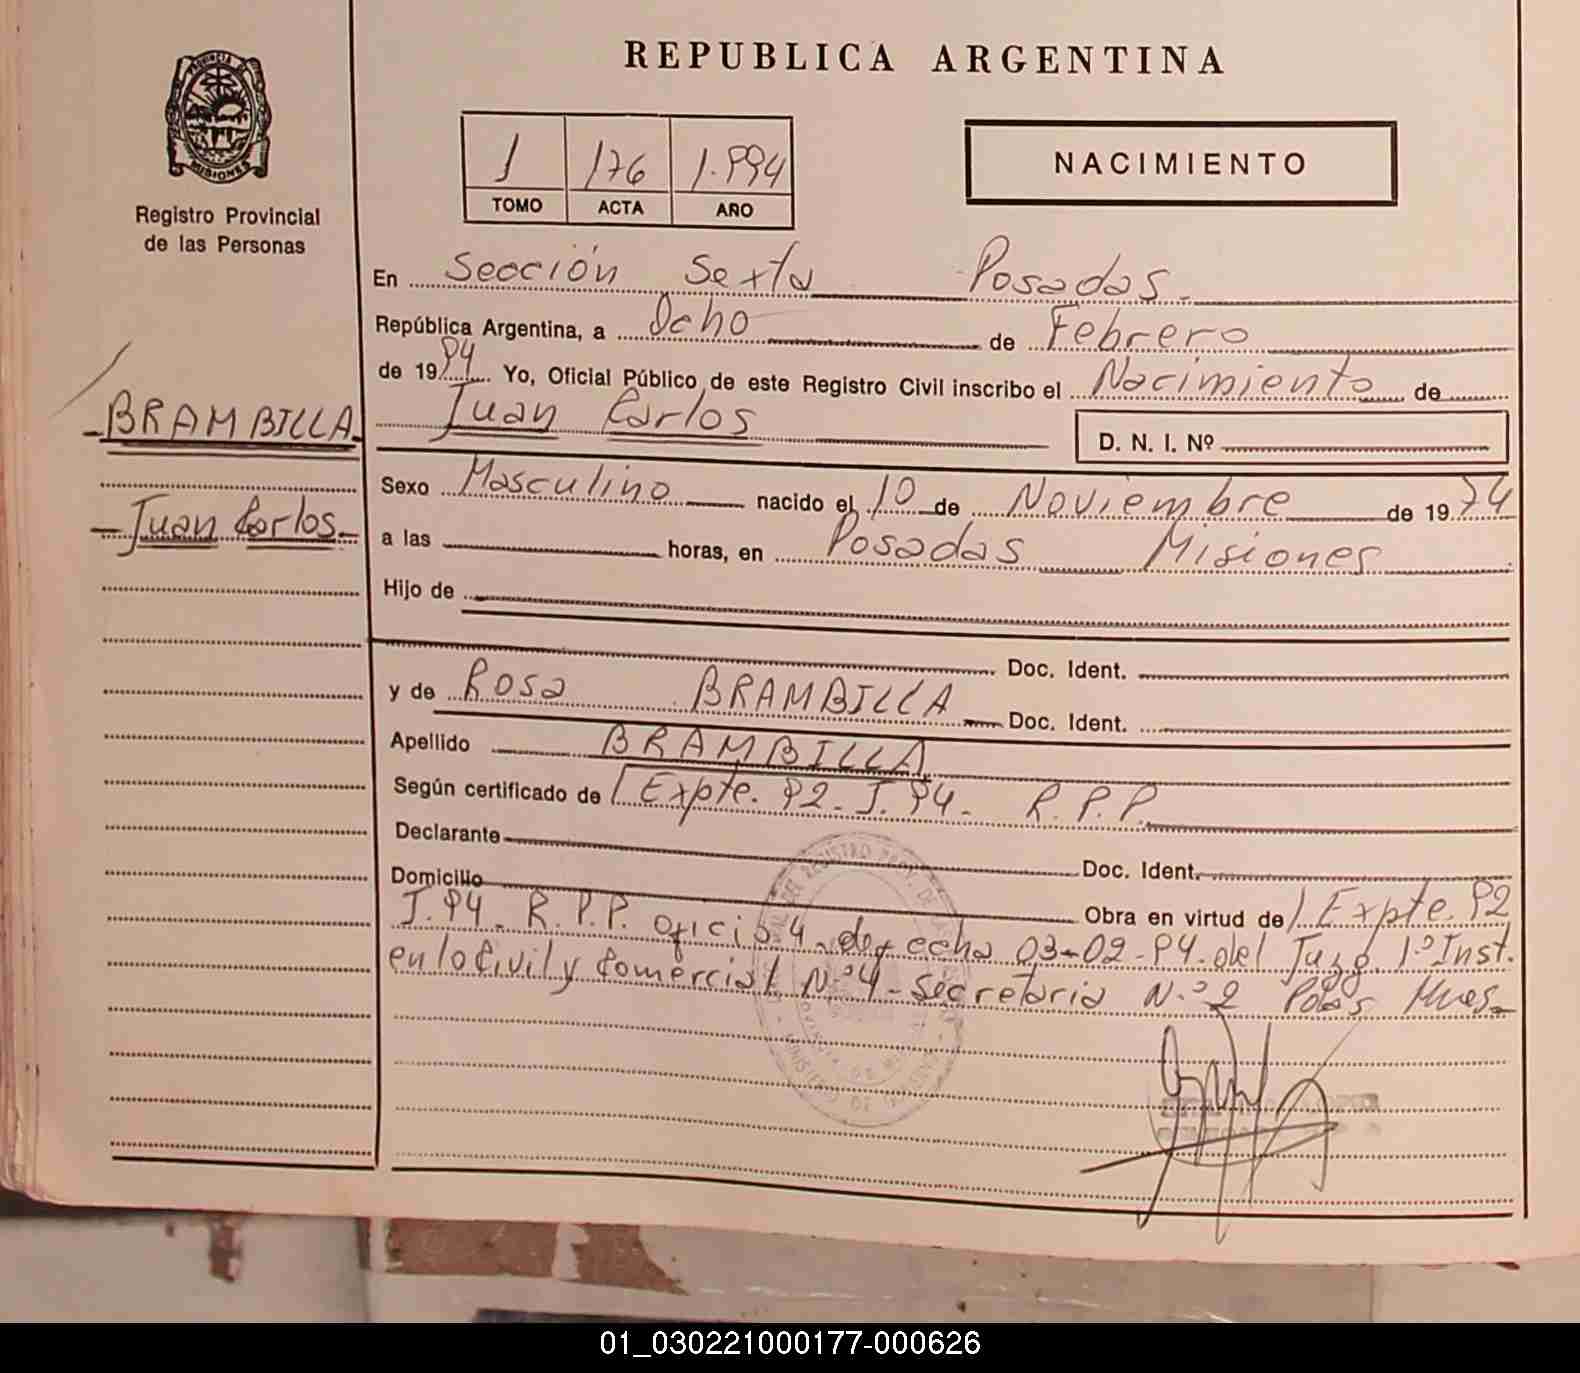 REPUBLICA ARGENTINA
PROVINCIA DE
MISIONES
Registro Provincial
de las Personas
1 176 1.994
TOMO ACTA AÑO
NACIMIENTO
En Sección Sexta Posadas.
República Argentina, a Ocho de Febrero
de 1994. Yo, Oficial Público de este Registro Civil inscribo el Nacimiento de
BRAMBILLA
Juan Carlos
D. N. I. Nº
Sexo Masculino nacido el 10 de Noviembre de 1974
Juan Carlos.
a las horas, en Posadas Misiones
Hijo de
Doc. Ident.
y de Rosa BRAMBILLA Doc. Ident.
Apellido BRAMBILLA
Según certificado de Expte. 92. J. 94. R.P.P.
Declarante Doc. Ident.
Domicilio Obra en virtud de Expte. 92
J. 94. R.P.P. oficio 4. de fecha 03-02-94. del Juzg. 1.º Inst.
en lo Civil y Comercial N.º 4 - Secretaria N.º 2 Pdas Mnes.
01_030221000177-000626